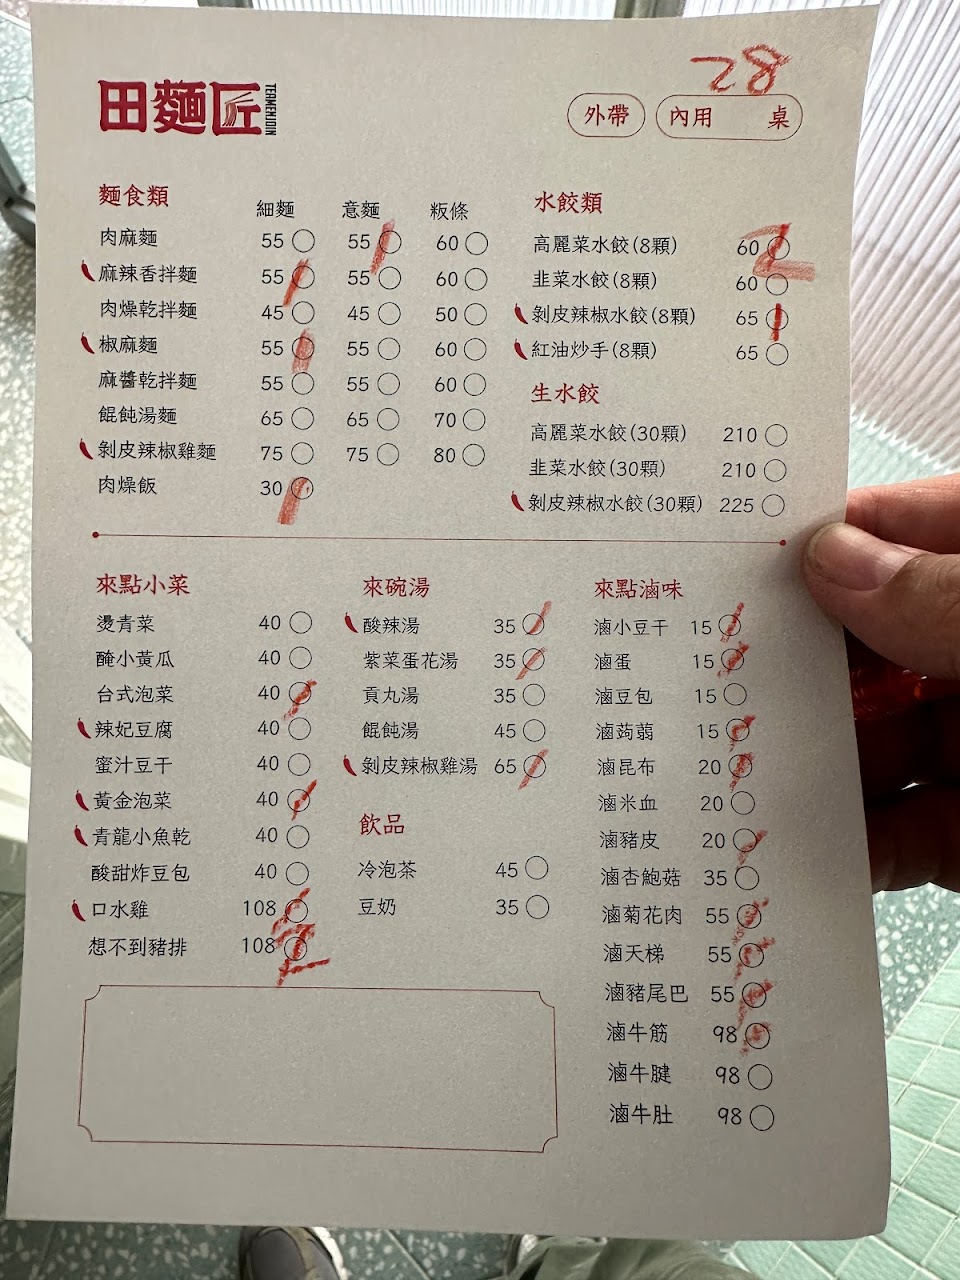 28
田麵匠 TERMENJOIN
外帶 內用 桌
麵食類 細麵 意麵 粄條
肉麻麵 55 55 60
麻辣香拌麵 55 55 60
肉燥乾拌麵 45 45 50
椒麻麵 55 55 60
麻醬乾拌麵 55 55 60
餛飩湯麵 65 65 70
剝皮辣椒雞麵 75 75 80
肉燥飯 30
水餃類
高麗菜水餃(8顆) 60 2
韭菜水餃(8顆) 60
剝皮辣椒水餃(8顆) 65
紅油炒手(8顆) 65
生水餃
高麗菜水餃(30顆) 210
韭菜水餃(30顆) 210
剝皮辣椒水餃(30顆) 225
來點小菜
燙青菜 40
醃小黃瓜 40
台式泡菜 40
辣妃豆腐 40
蜜汁豆干 40
黃金泡菜 40
青龍小魚乾 40
酸甜炸豆包 40
口水雞 108
想不到豬排 108 2
來碗湯
酸辣湯 35
紫菜蛋花湯 35
貢丸湯 35
餛飩湯 45
剝皮辣椒雞湯 65
飲品
冷泡茶 45
豆奶 35
來點滷味
滷小豆干 15
滷蛋 15
滷豆包 15
滷蒟蒻 15
滷昆布 20
滷米血 20
滷豬皮 20
滷杏鮑菇 35
滷菊花肉 55
滷天梯 55
滷豬尾巴 55
滷牛筋 98
滷牛腱 98
滷牛肚 98